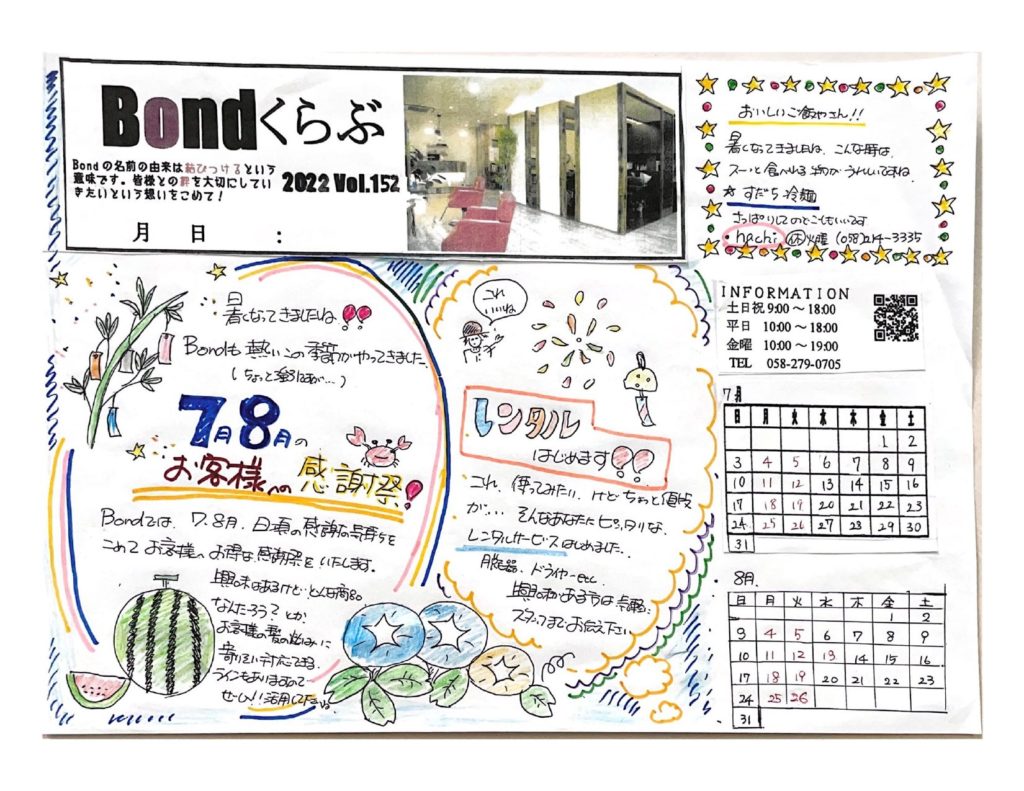 Bondくらぶ
Bondの名前の由来は結びつけるという
意味です。皆様との絆を大切にしてい
きたいという想いをこめて!
2022 Vol.152
月 日 :
おいしいご飯やさん!!
暑くなってきましたね、こんな時は、
スーッと食べれる
うれしいですね。
☆ すだち冷麺
さっぱりしてのどごしもいいです
・hachi 休火曜 (058)214-3335
INFORMATION
土日祝 9:00～18:00
平日 10:00～18:00
金曜 10:00～19:00
TEL 058-279-0705
暑くなってきましたね!!
Bondも熱いこの季節がやってきました。
(ちょっと
が…)
7月8月の
お客様への感謝祭!
Bondでは、7.8月、日頃の感謝の気持ちを
こめてお客様へお得な感謝祭をいたします。
興味はあるけど…どんな商品
なんだろう?とか
お客様の髪の悩みに
ラインもありますので
ぜひ!!活用して下さいね。
これ
いいね
レンタル
はじめます!!
これ、使ってみたい、けどちょっと値段
が… そんなあなたにピッタリな、
レンタルサービスはじめました。
脱毛器、ドライヤーetc
興味がある方は気軽に
スタッフまでお伝え下さい。
7月
日 月 火 水 木 金 土
1 2
3 4 5 6 7 8 9
10 11 12 13 14 15 16
17 18 19 20 21 22 23
24 25 26 27 28 29 30
31
8月.
日 月 火 水 木 金 土
1 2
3 4 5 6 7 8 9
10 11 12 13 14 15 16
17 18 19 20 21 22 23
24 25 26
31